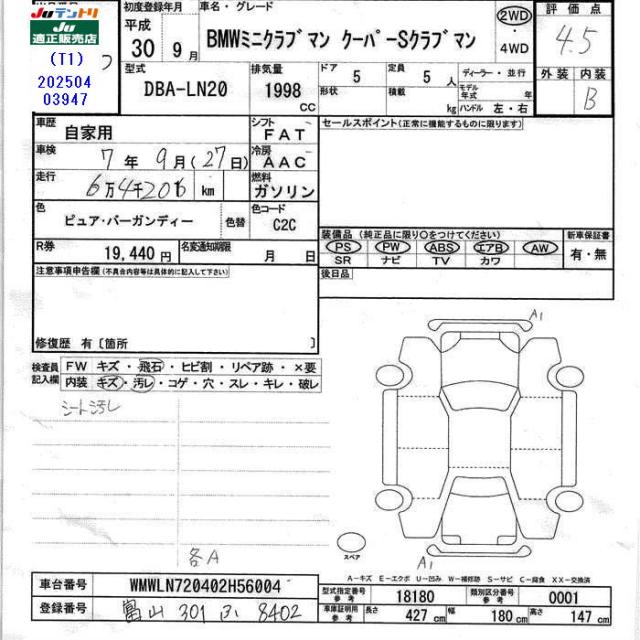 Juテントリ
Ju
適正販売店
(T1)
202504
03947
初度登録年月
平成
30年 9月
車名・グレード
BMWミニクラブマン クーパーSクラブマン
2WD
4WD
評価点
4.5
外装 内装
B
型式
DBA-LN20
排気量
1998
CC
ドア 5
形状
定員 5 人
積載 kg
ディーラー・並行
モデル年式 年
ハンドル 左・右
車歴
自家用
シフト
FAT
セールスポイント(正常に機能するものに限ります)
車検
7年 9月(27日)
冷房
AAC
走行
6万4千20 km
燃料
ガソリン
色
ピュア・バーガンディー
色替
色コード
C2C
装備品(純正品に限り○をつけてください)
PS PW ABS エアB AW
SR ナビ TV カワ
新車保証書
有・無
R券
19,440円
名変通知期限
月 日
後日品
注意事項申告欄(不具合内容等は具体的に記入して下さい)
修復歴 有〔箇所 〕
検査員
記入欄
FW キズ・飛石・ヒビ割・リペア跡・×要
内装 キズ・汚レ・コゲ・穴・スレ・キレ・破レ
シート汚レ
各A
A1
A1
スペア
A-キズ E-エクボ U-凹み W-補修跡 S-サビ C-腐食 XX-交換済
車台番号
WMWLN720402H56004
登録番号
富山 301 ふ 8402
型式指定番号
参考
18180
類別区分番号
参考
0001
車庫証明用
参考
長さ 427cm
幅 180cm
高さ 147cm